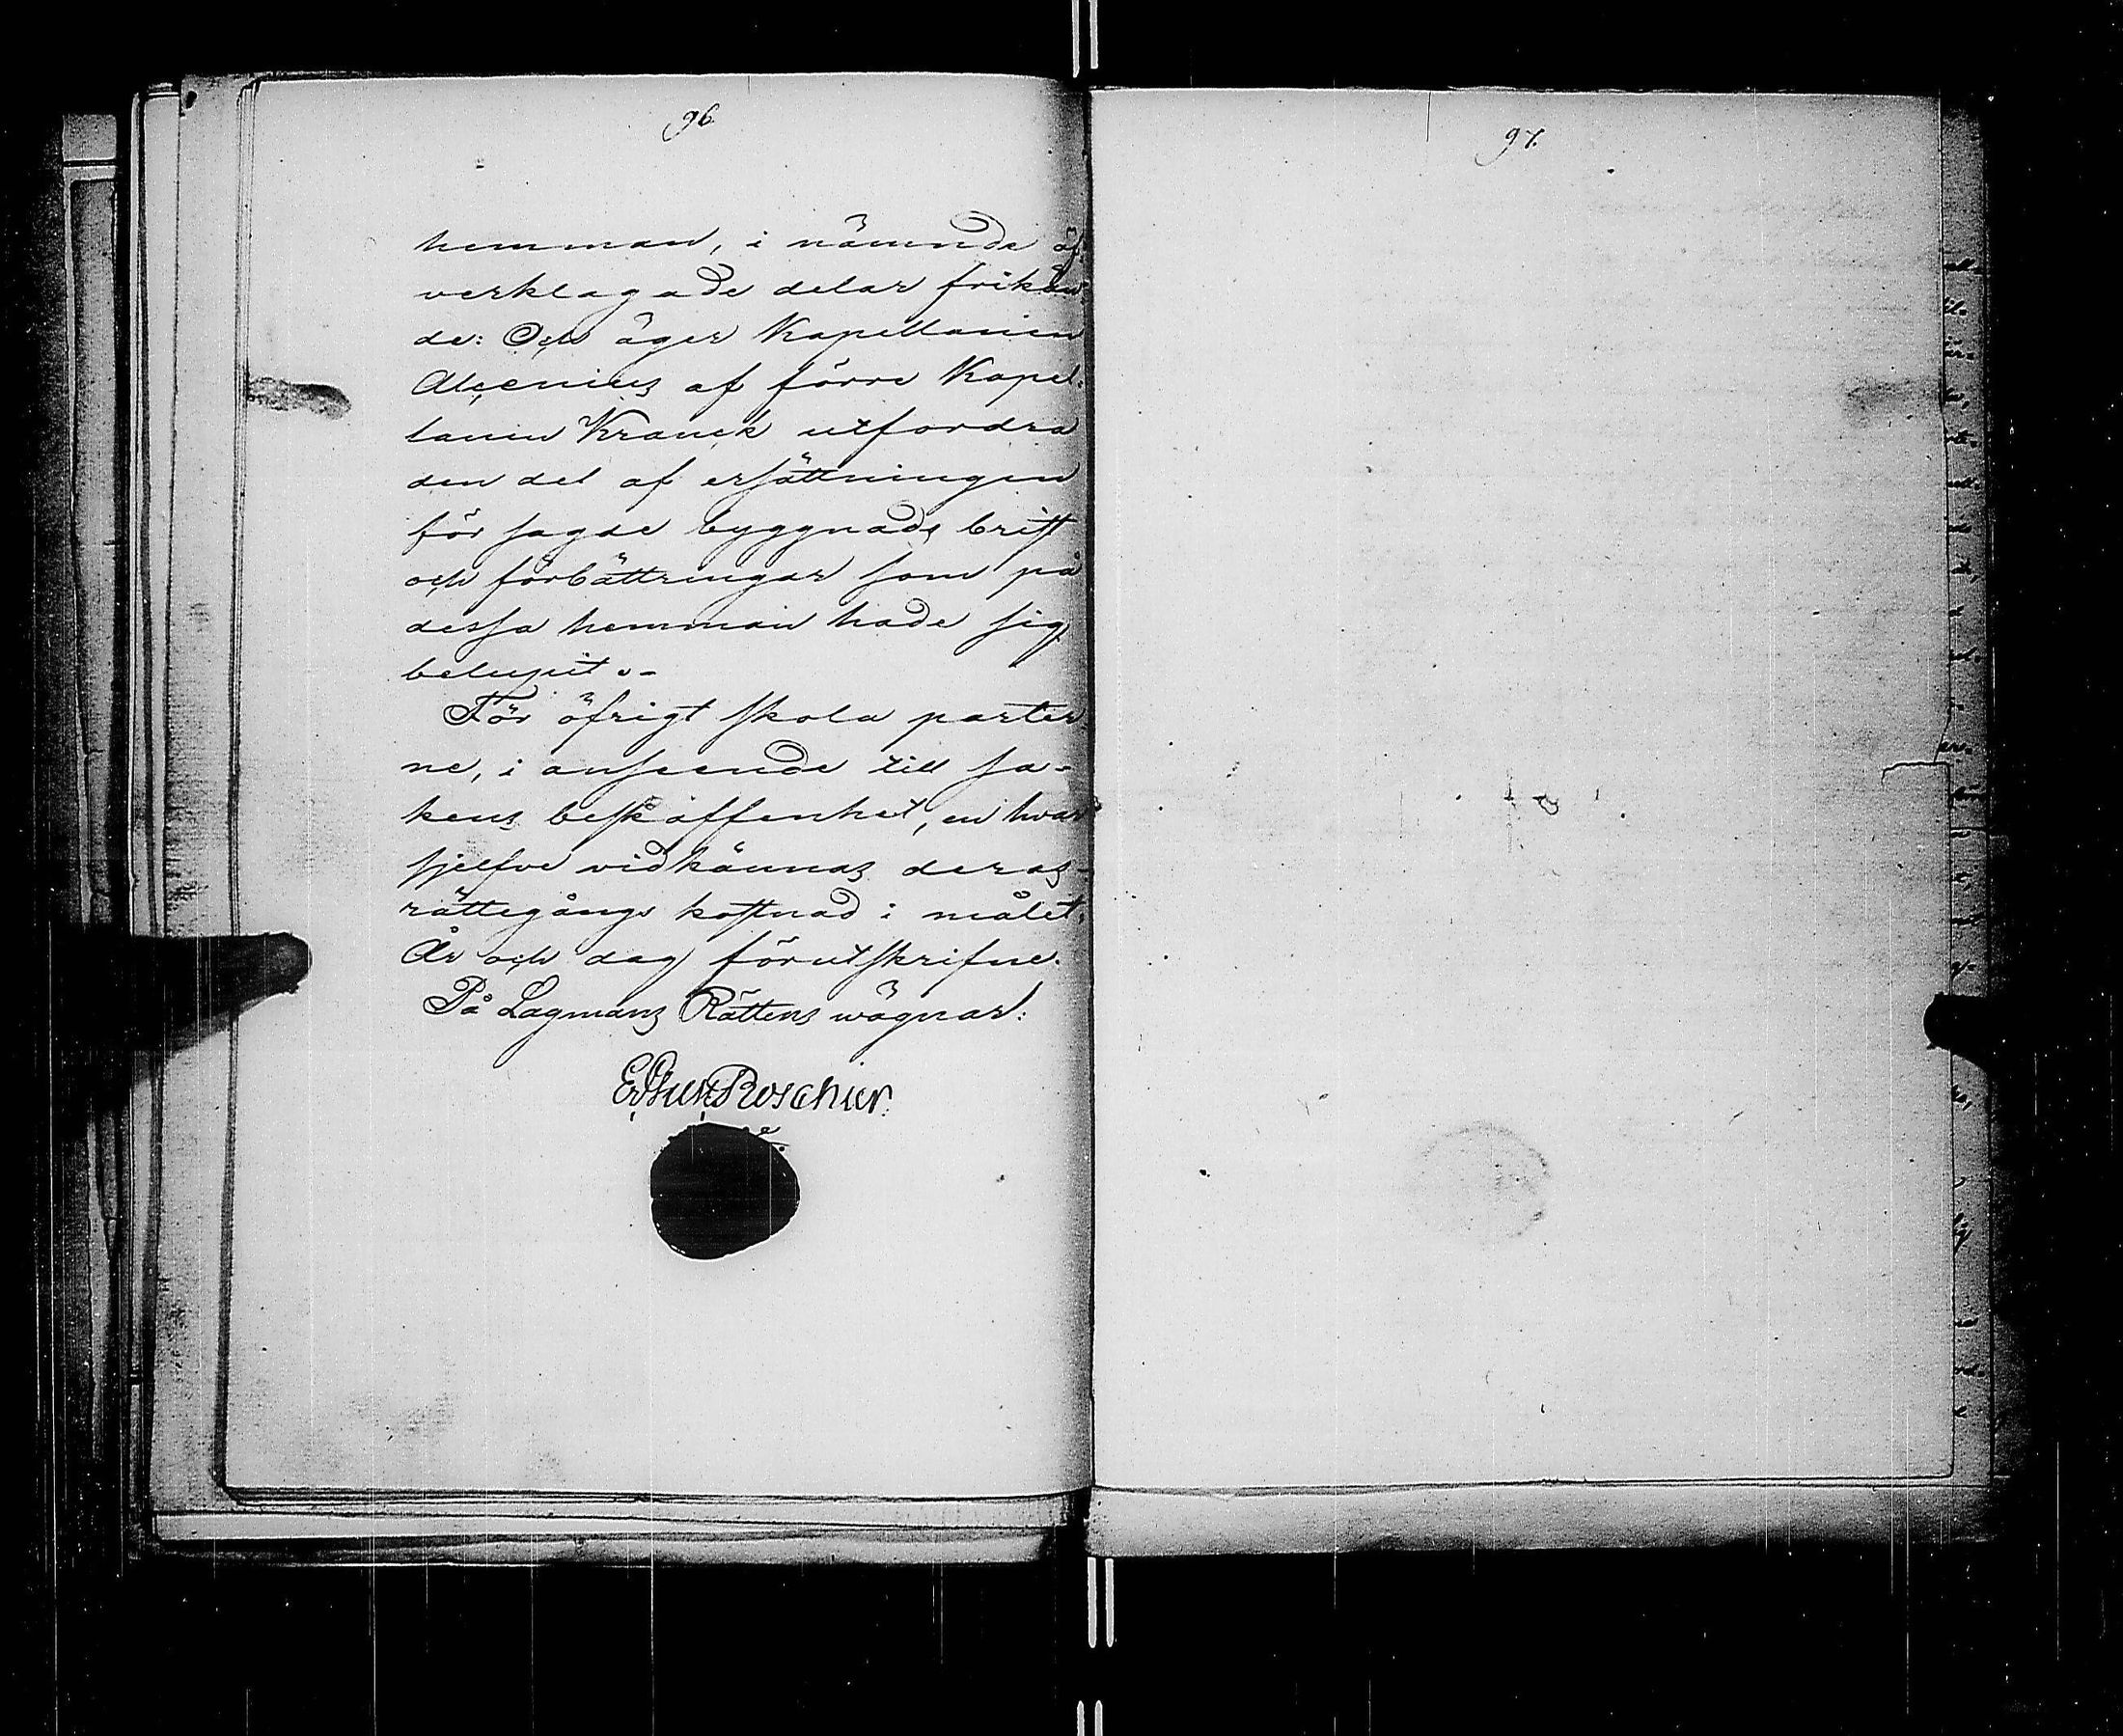 96.
hemman, i nämnde öf-
verklagade delar frikän-
de: Och äger Kapellanen
Alcenius af förre Kapel-
lanen Kranck utfordra
den del af ersättningen
för sagde byggnads brist
och förbättringar som på
dessa hemman hade sig
belupit.-
För öfrigt skola parter
ne, i anseende till sa-
kens beskaffenhet, en hvar
sjelfve vidkännas deras
rättegångs kostnad i målet.
År och dag förutskrifne.
På Lagmans Rättens wägnar:
Roschier.
97.